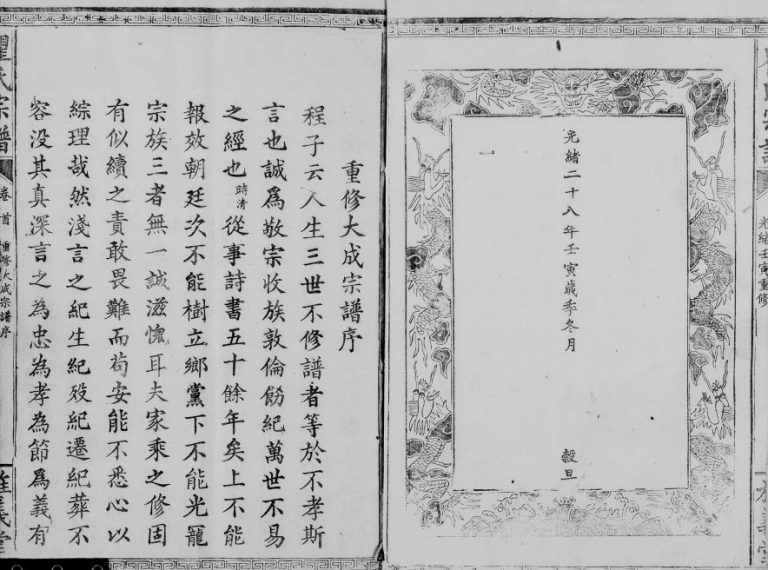 光緒二十八年壬寅歲季冬月 穀旦
光緒壬寅重修
重修大成宗譜序
程子云人生三世不修譜者等於不孝斯
言也誠爲敬宗收族敦倫飭紀萬世不易
之經也時清從事詩書五十餘年矣上不能
報效朝廷次不能樹立鄉黨下不能光寵
宗族三者無一誠滋愧耳夫家乘之修固
有似續之責敢畏難而苟安能不悉心以
綜理哉然淺言之紀生紀歿紀遷紀葬不
容没其真深言之為忠為孝為節爲義有
氏宗譜
卷首
重修大成宗譜序